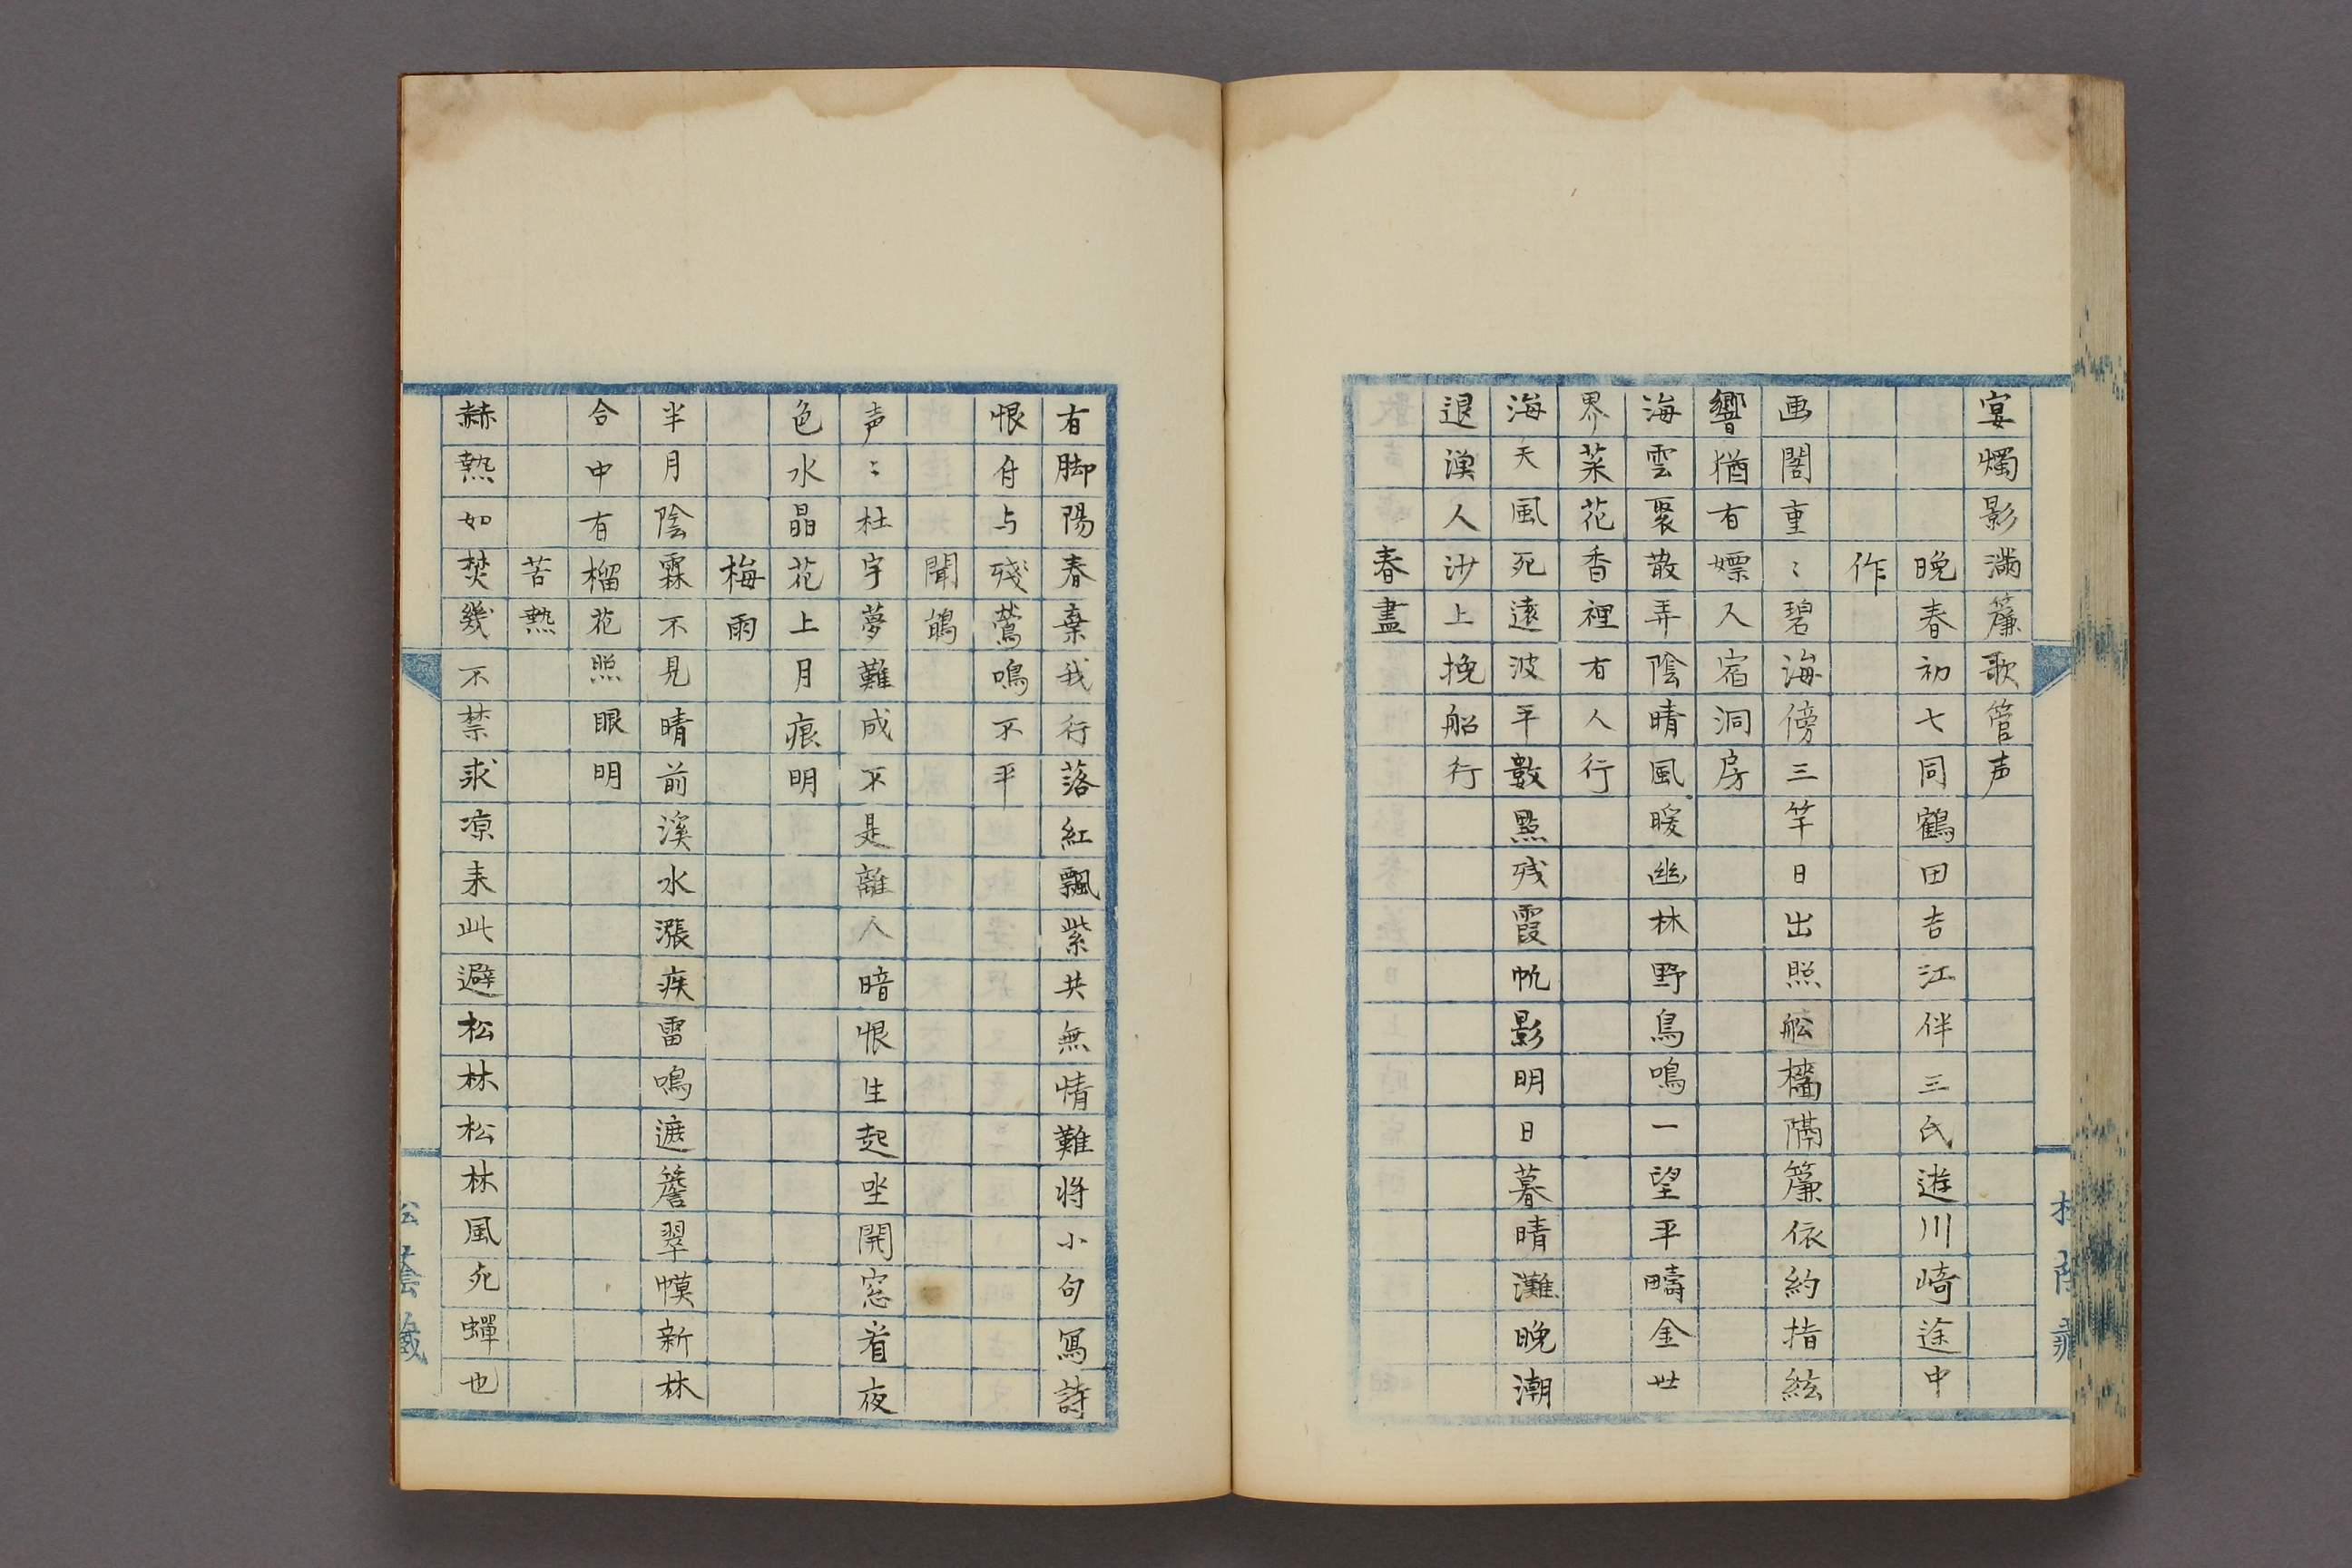 宴燭影満簾歌管声
晩春初七同鶴田吉江伴三氏遊川崎途中
作
画閣重〻碧海傍三竿日出照舩檣隔簾依約指絃
響猶有嫖人宿洞房
海雲聚散弄陰晴風暖幽林野鳥鳴一望平疇金世
界菜花香裡有人行
海天風死遠波平數點残霞帆影明日暮晴灘晩潮
退漁人沙上挽船行
春盡
有脚陽春棄我行落紅飄紫共無情難将小句寫詩
恨付与殘鶯鳴不平
聞鵑
声〻杜宇夢難成不是離人暗恨生起坐開窓看夜
色水晶花上月痕明
梅雨
半月陰霖不見晴前溪水漲疾雷鳴遮簷翠幙新林
合中有榴花照眼明
苦熱
赫熱如焚幾不禁求凉来此避松林松林風死蟬也
松蔭蔵